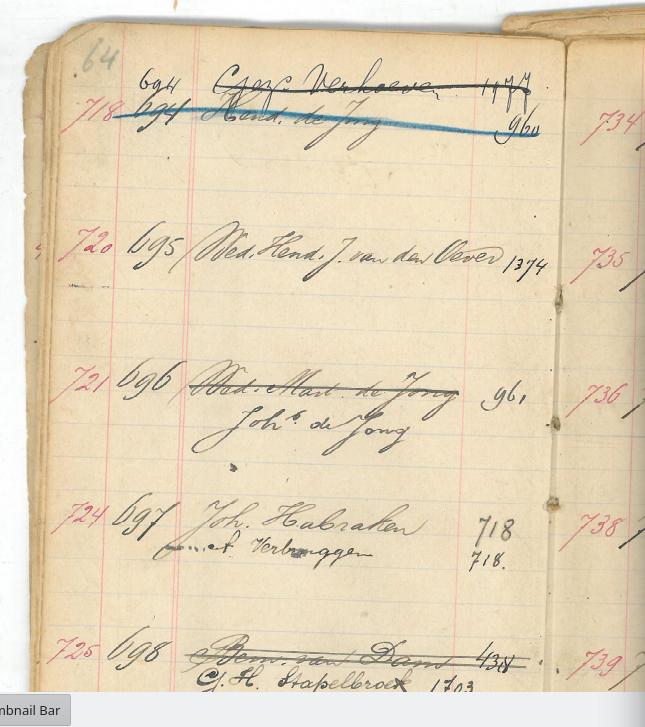 64
694 Verhoeven 1177
718 694 Hend. de Jong 960
734
720 695 Wed. Hend. J. van den Oever 1374
735
721 696 Wed. Mart. de Jong 961
736
Joh.s de Jong
724 697 Joh. Habraken 718
738
Verbruggen 718.
725 698 van Dam 438
739
G. H. Stapelbroek 1703
mbnail Bar